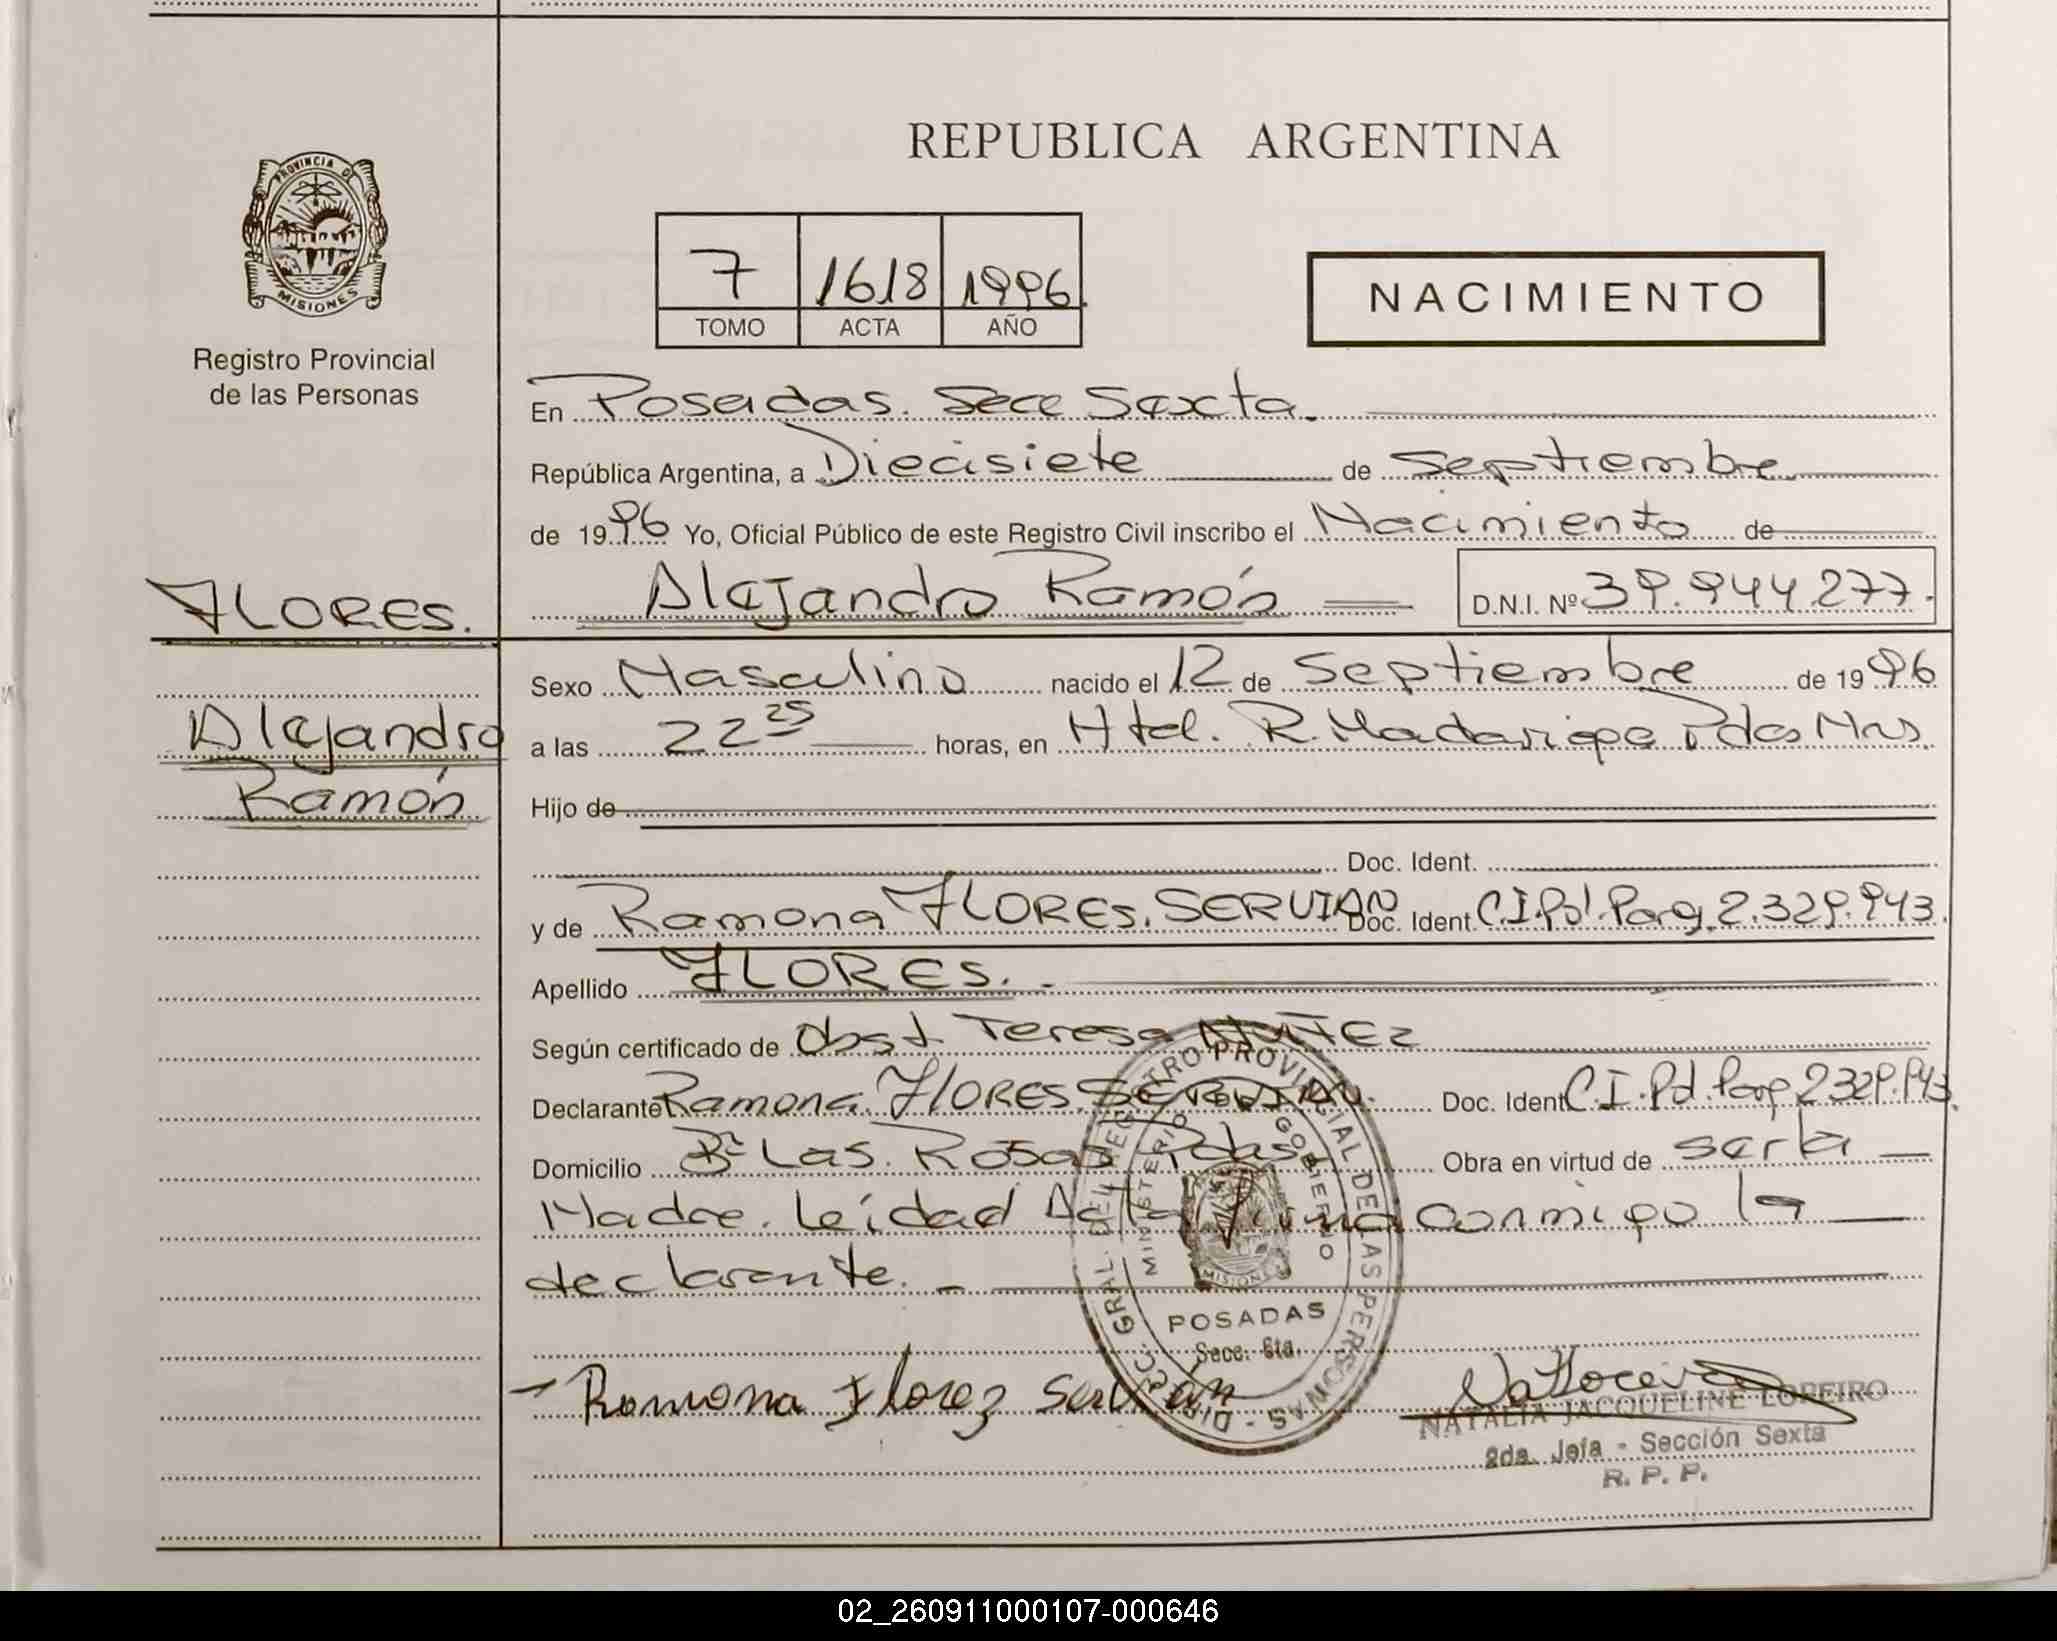 REPUBLICA ARGENTINA
PROVINCIA DE
MISIONES
Registro Provincial
de las Personas
7 1618 1996.
TOMO ACTA AÑO
NACIMIENTO
En Posadas. Secc Sexta.
República Argentina, a Diecisiete de Septiembre
de 1996 Yo, Oficial Público de este Registro Civil inscribo el Nacimiento de
FLORES.
Alejandro Ramón D.N.I. Nº 39.944.277.
Alejandro
Ramón
Sexo Masculino nacido el 12 de Septiembre de 1996
a las 22 25 horas, en Htal. R. Madariaga Pdas Mns.
Hijo de
Doc. Ident.
y de Ramona FLORES. SERVIAN Doc. Ident. C.I.Pol.Parag. 2.329.943.
Apellido FLORES.
Según certificado de Obst. Teresa NUÑEZ
Declarante Ramona FLORES. SERVIAN. Doc. Ident. C.I.Pol.Parag 2.329.943.
Domicilio Bº Las Rosas Pdas. Obra en virtud de ser la
Madre. Leídad Acta Firma conmigo la
declarante.
DIRECC. GRAL. DEL REGISTRO PROVINCIAL DE LAS PERSONAS -
MINISTERIO GOBIERNO
MISIONES
POSADAS
Secc. 6ta.
Ramona Florez Servián
NATALIA JACQUELINE LOREIRO
2da. Jefa - Sección Sexta
R. P. P.
02_260911000107-000646